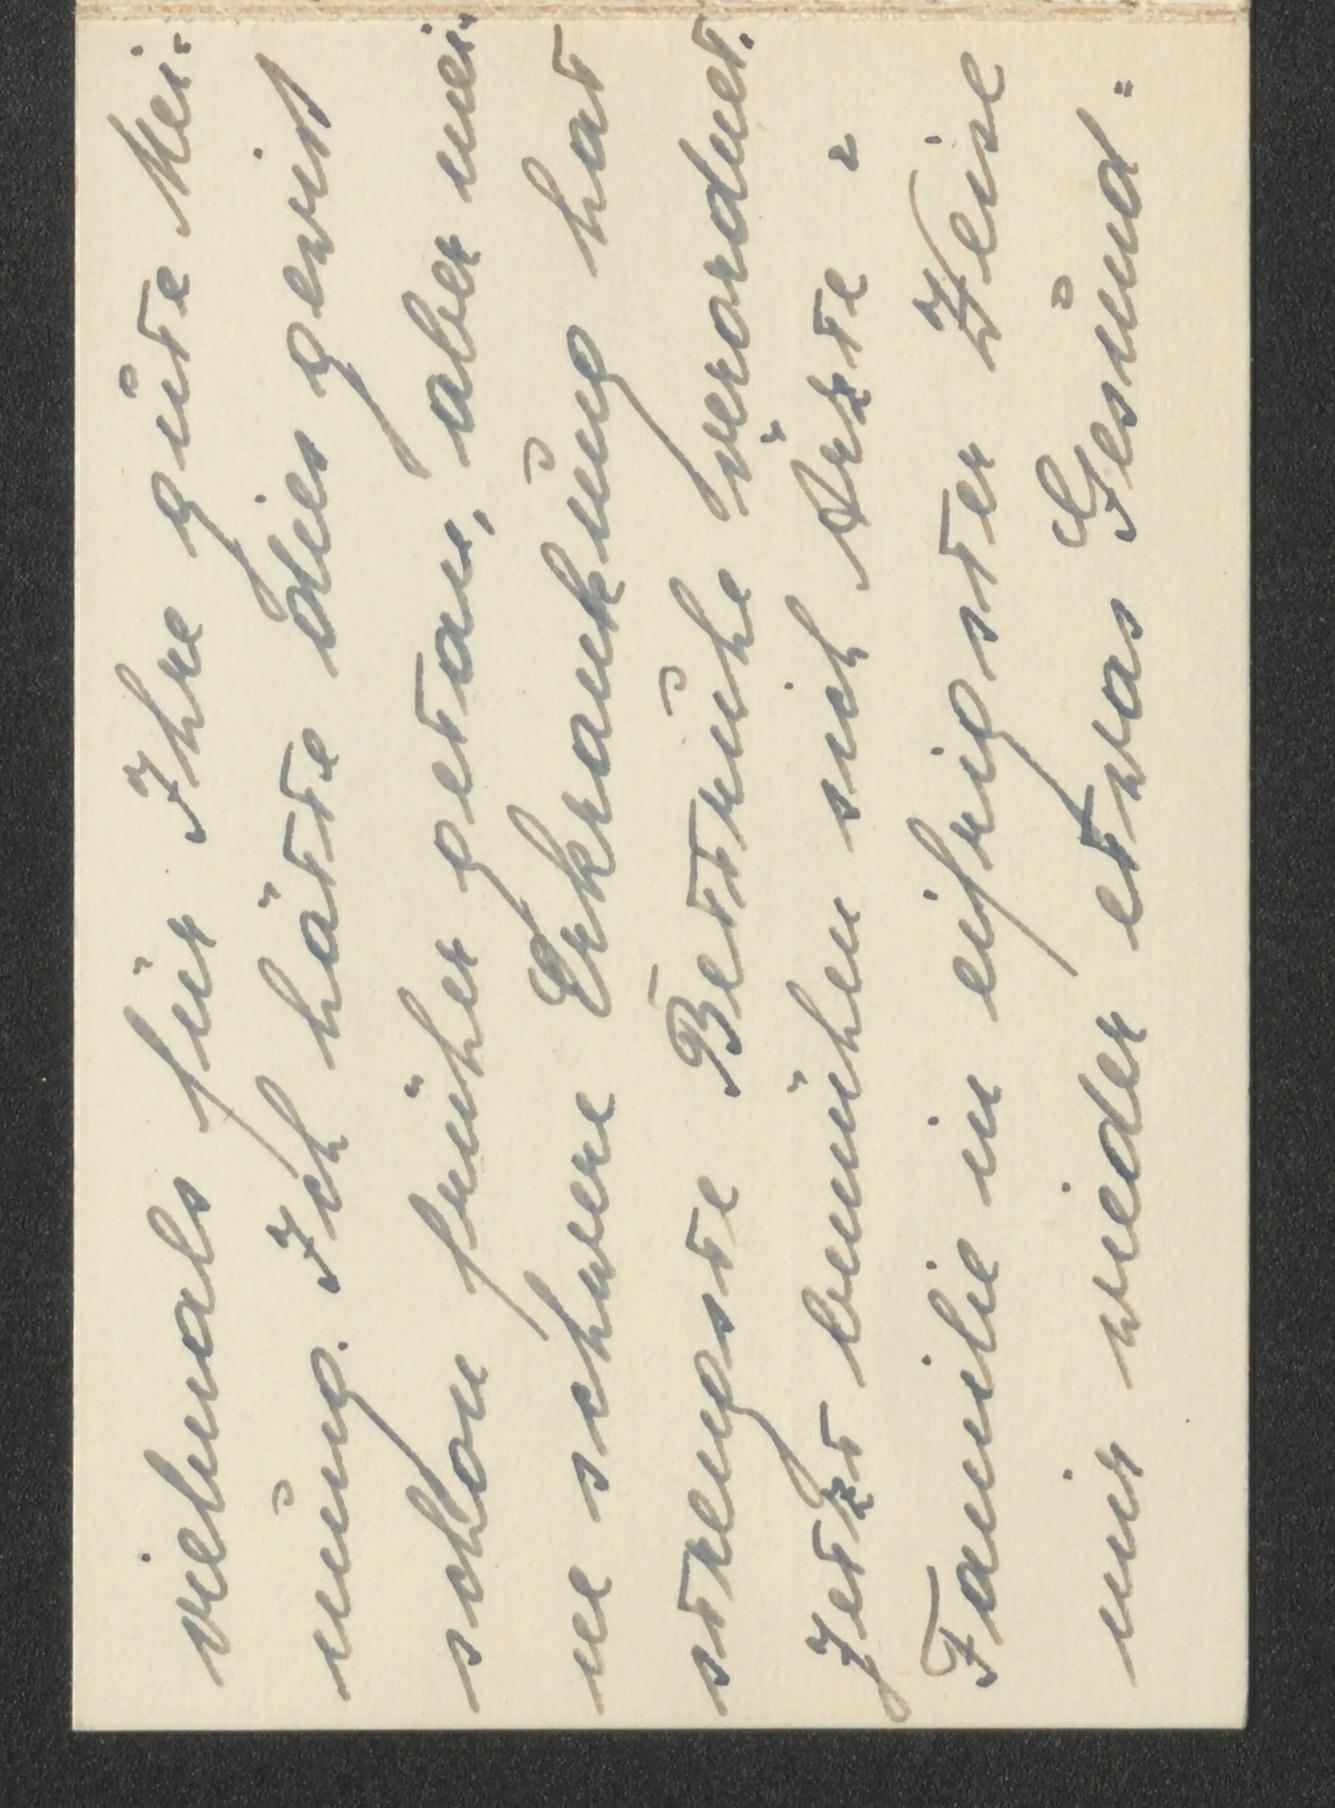 vielmals für Ihre gute Mei-
nung. Ich hätte dies gewiß
schon früher getan, aber mei-
ne schwere Erkrankung hat
strengste Bettruhe verordnet.
Jetzt bemühen sich Ärzte u
Familie in eifrigster Weise
mir wieder etwas Gesund=